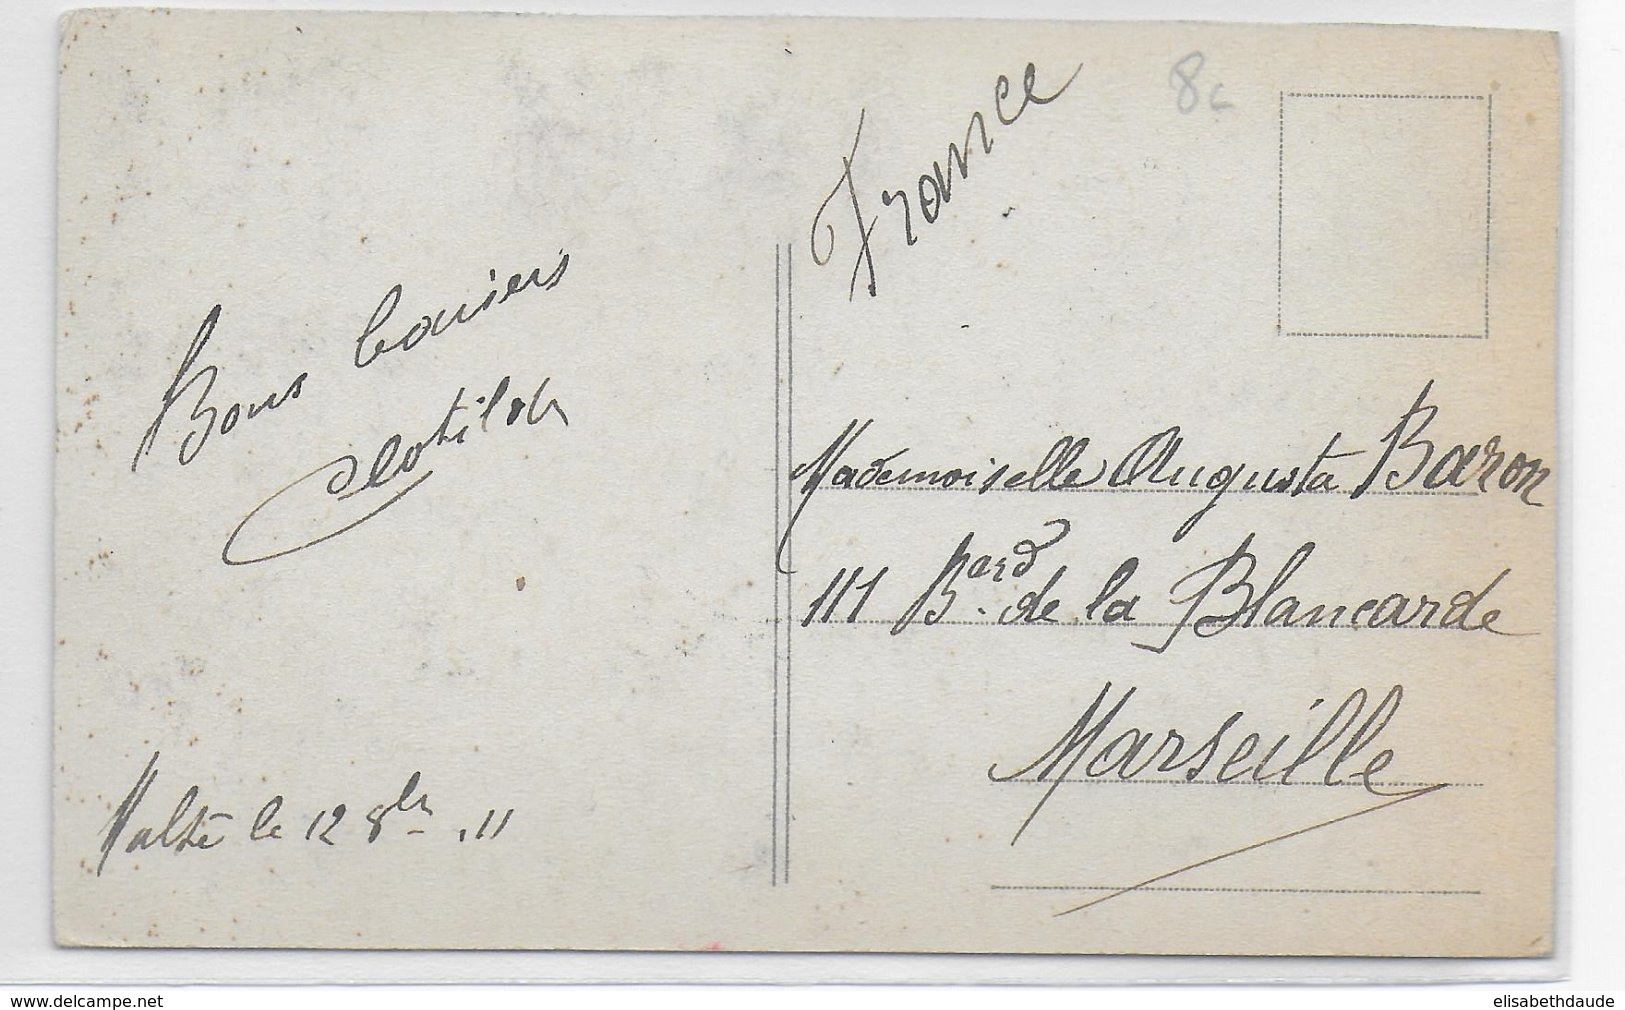 Bons baisers
Clotilde
Malte le 12 8bre .11
France
8c
Mademoiselle Augusta Baron
111 Bard. de la Blancarde
Marseille
www.delcampe.net
elisabethdaude